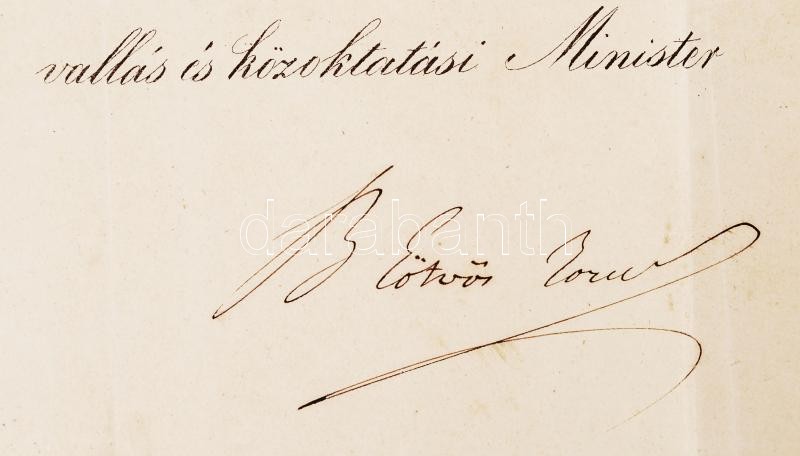 vallás és közoktatási Minister
B Eötvös
darabanth